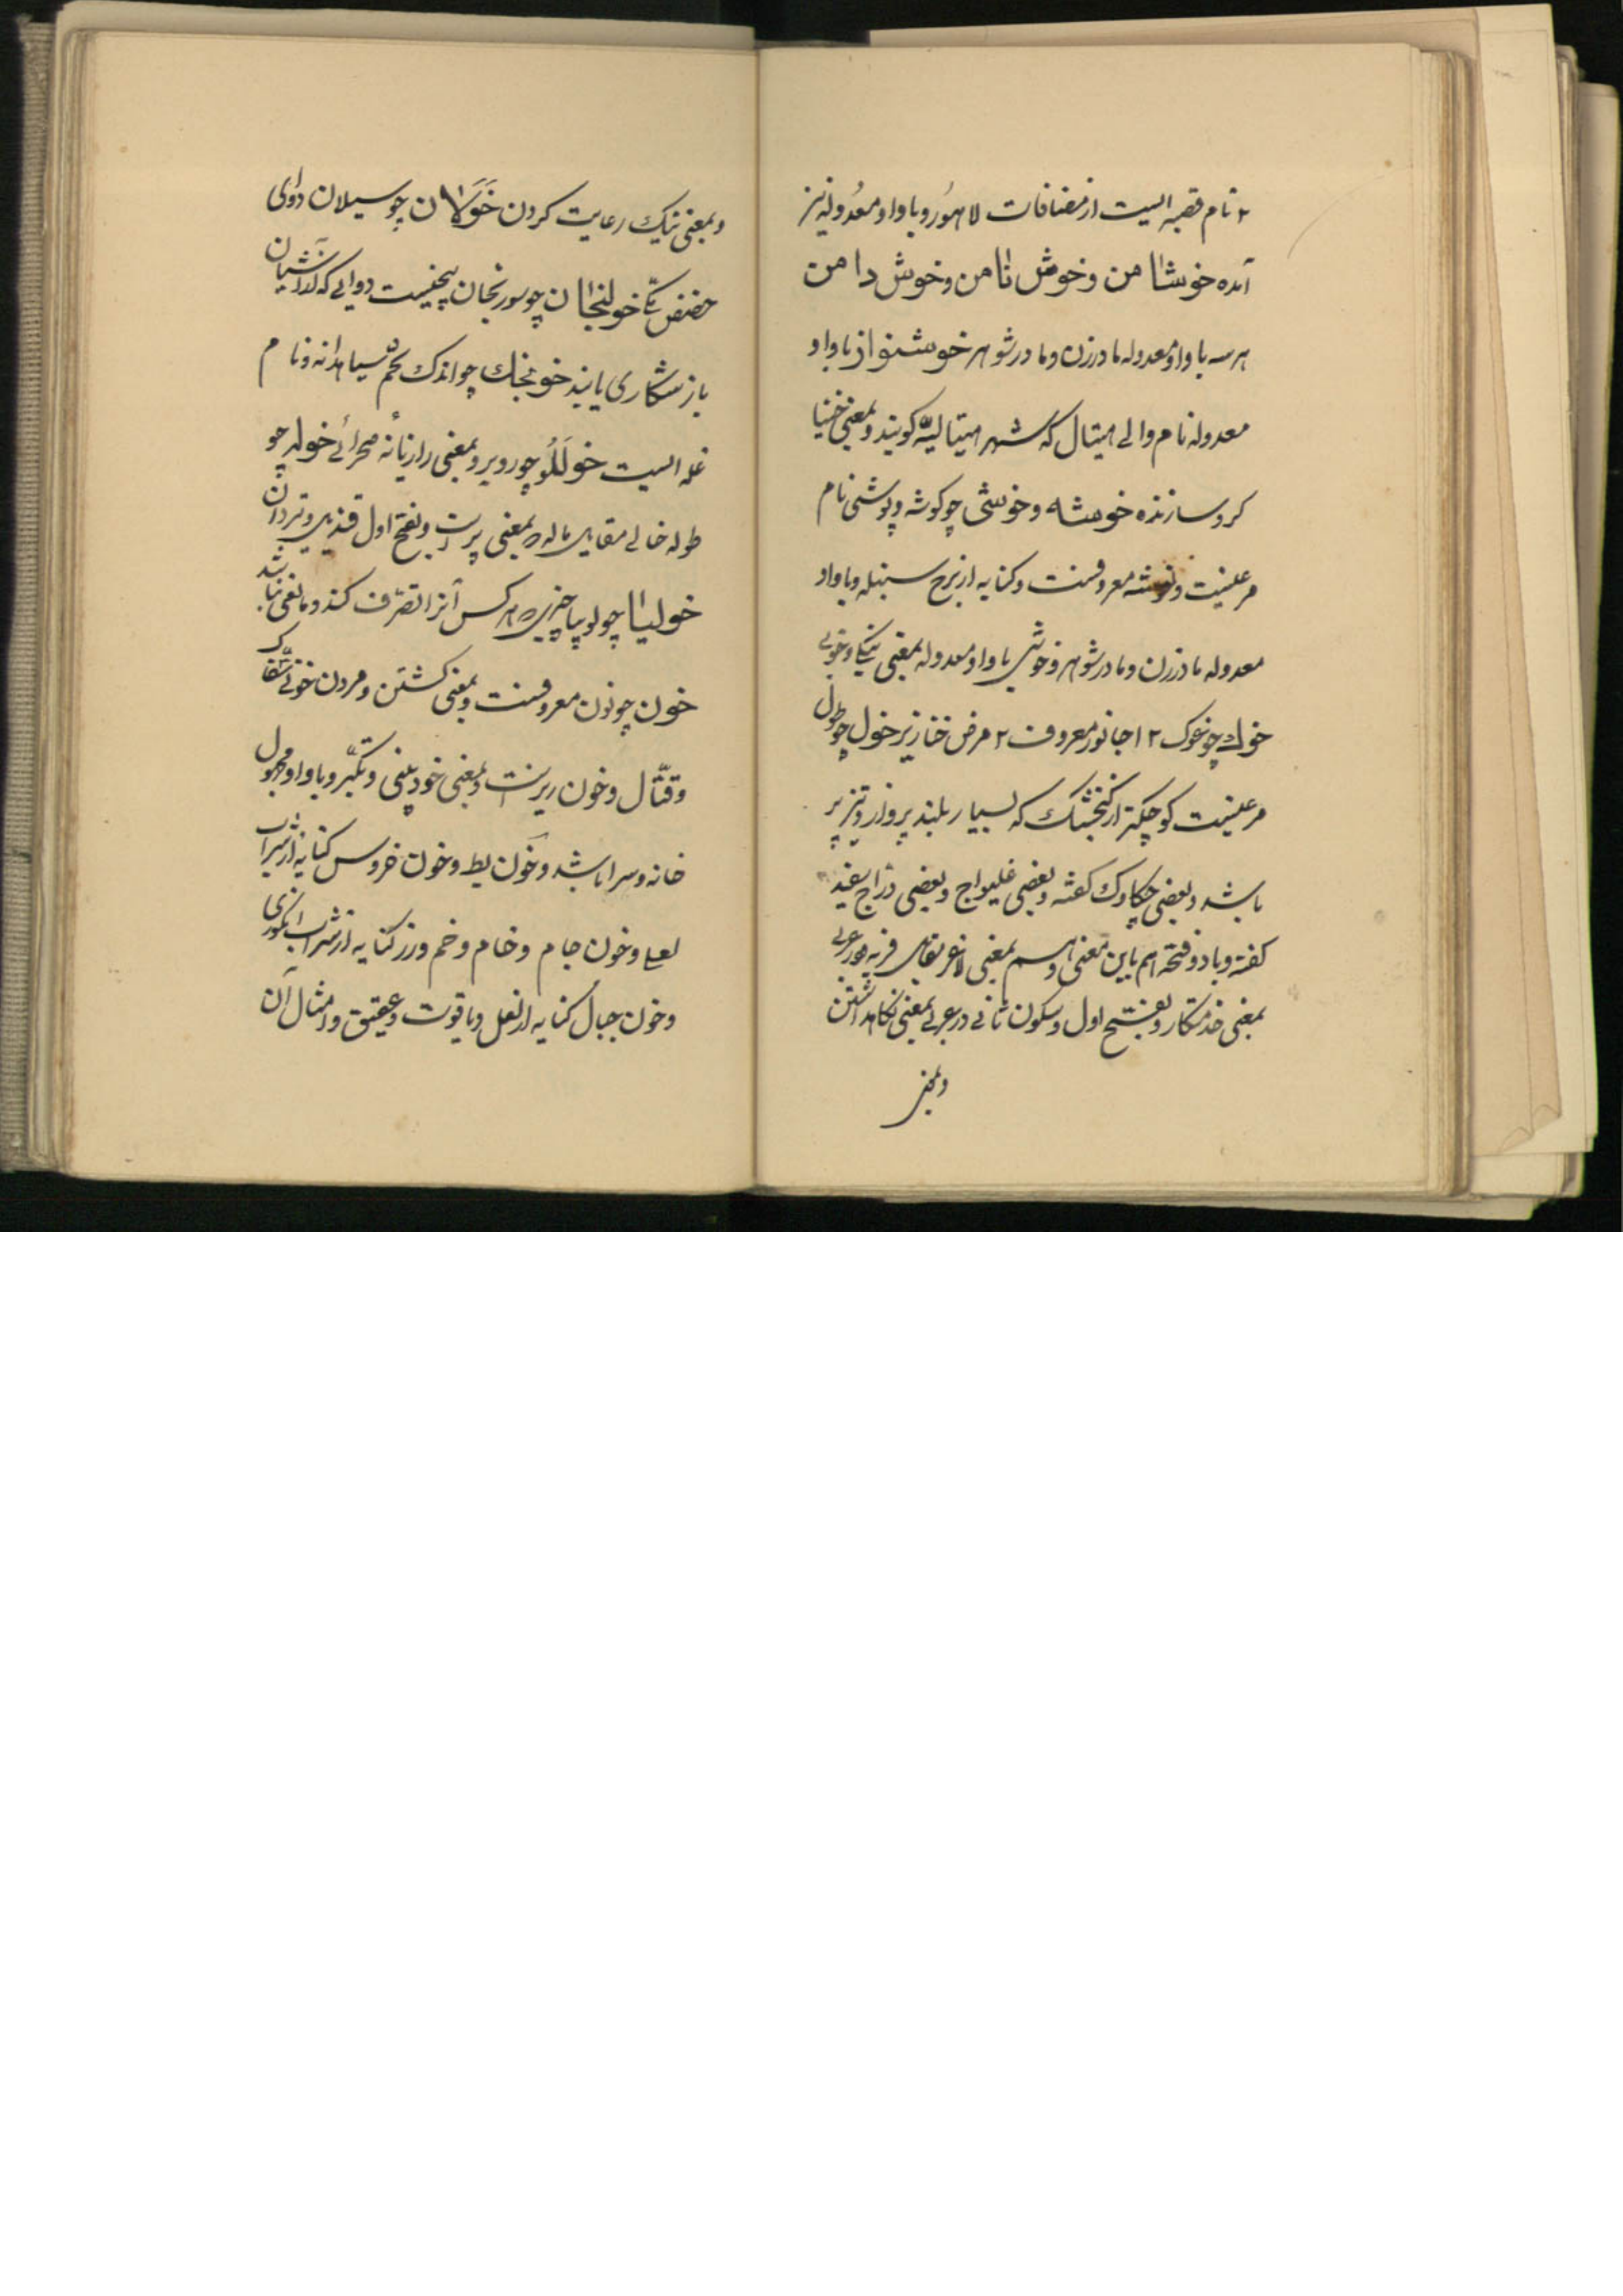 ۲ نام قصبه ایست از مضافات لاهور و با واو معدوله نیز
آمده خوشامن و خوش نامن و خوش دامن
هر سه با واو معدوله مادر زن و مادر شوهر خوشنواز با واو
معدوله نام والی هیتال که شهر هیتالیه کویند و بمعنی خنیا
کر و سازنده خوشه و خوشی چو کوشه و پوشی نام
مرغیست و خوشه معروفست و کنایه از برج سنبله و با واو
معدوله مادر زن و مادر شوهر و خوشی با واو معدوله بمعنی نیکی و خوبی
خوک چو غوک ۱ جانور معروف ۲ مرض خنازیر خول چو طول
مرغیست کوچکتر از کنجشک که بسیار بلند پرواز و تیز پر
باشد و بعضی چکاوک کفته و بعضی غلیواج و بعضی دراج سفید
کفته و با دو فتحه هم باین معنی و هم بمعنی لاغر نقیض فربه و در عربی
بمعنی خدمتکار و بفتح اول و سکون ثانی در عربی بمعنی نکاهداشتن
و بمعنی
و بمعنی نیک رعایت کردن خولان چو سیلان دوای
حضض مکی خولنجان چو سورنجان بیخیست دوایی که از آشیان
باز شکاری یابند خولنجک چو اندک تخم سیاهدانه و نام
غله ایست خوللو چو روبرو بمعنی رازیانه صحرائی خوله چو
طوله خالی مقابل بمعنی پرست و بفتح اول و تردان
خولیا چو لوبیا چیزی هر کس آنرا تصرف کند و مانعی نباشد
خون چو نون معروفست و بمعنی کشتن و مردن خونی سفاک
و قتال و خون ریزست و بمعنی خودبینی و تکبر و با واو مجهول
خانه و سرا باشد و خون بط و خون خروس کنایه از شراب
لعلی و خون جام و خام و خم و رز کنایه از شراب انکوری
و خون جبال کنایه از لعل و یاقوت و عقیق و امثال آن